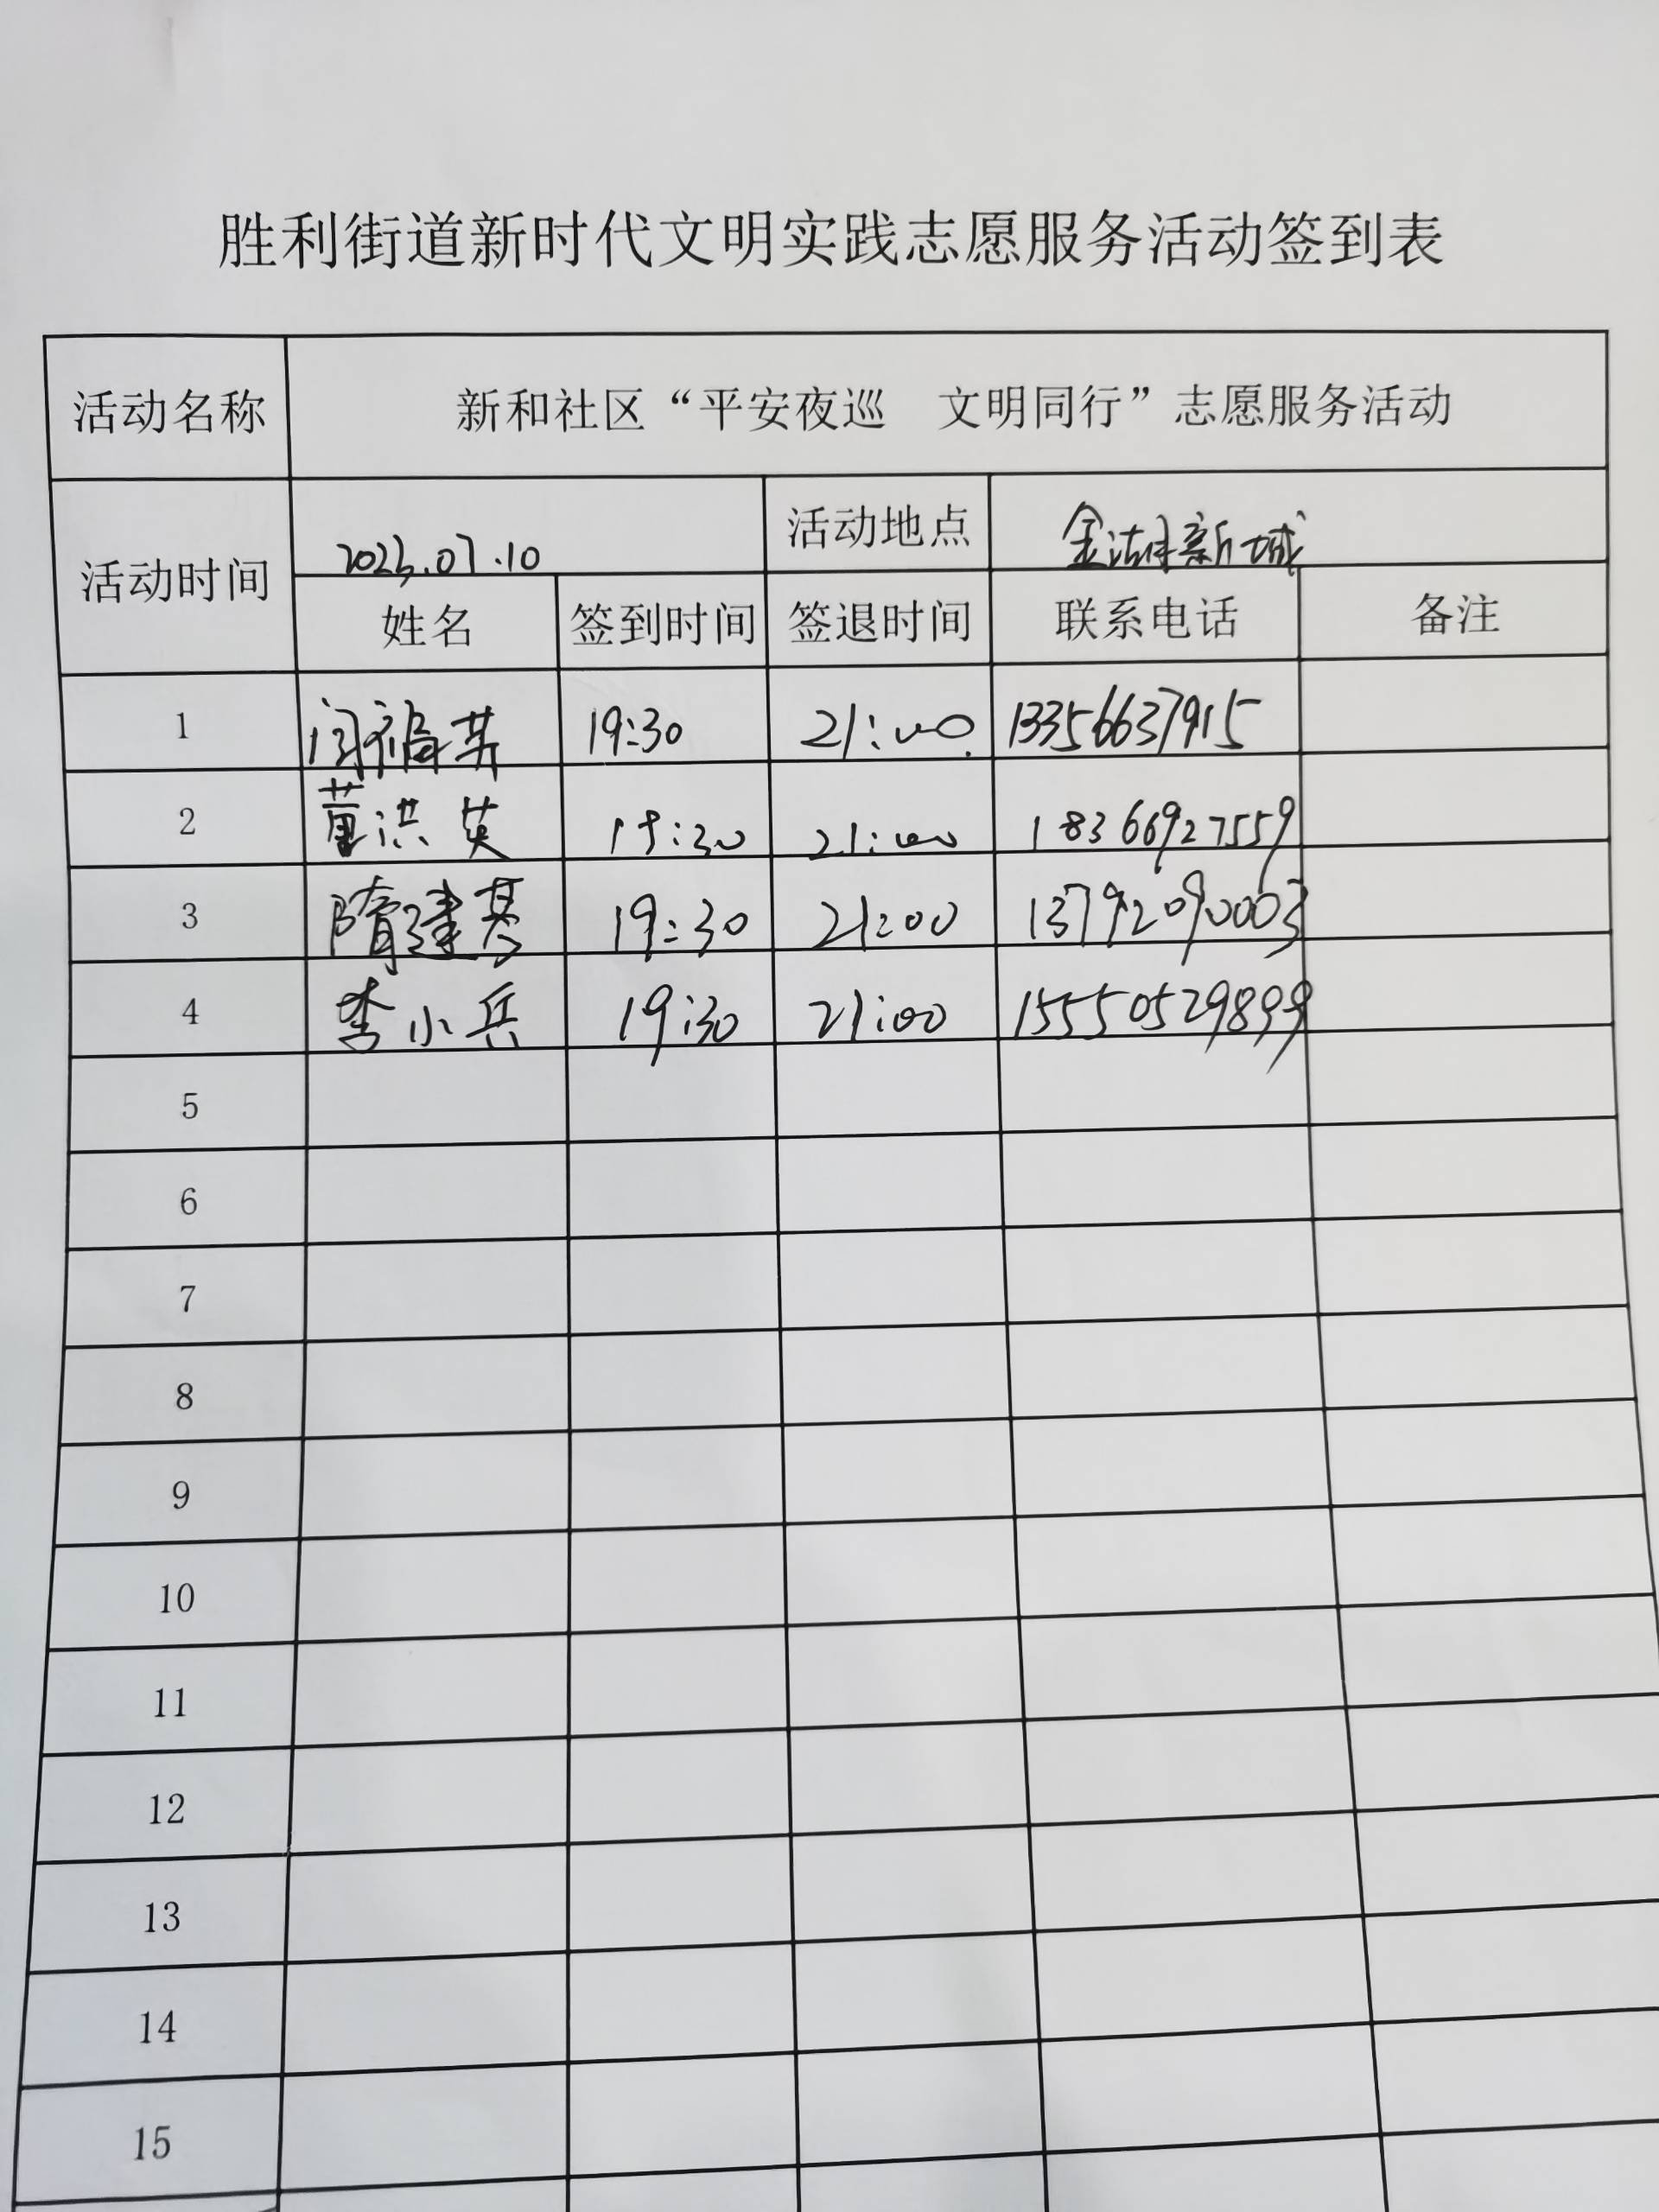 胜利街道新时代文明实践志愿服务活动签到表
活动名称 新和社区“平安夜巡 文明同行”志愿服务活动
活动时间 2023.07.10 活动地点 金湖新城
姓名 签到时间 签退时间 联系电话 备注
1 闫福英 19:30 21:00 13356637915
2 董洪英 19:30 21:00 18366927559
3 隋建基 19:30 21:00 13792090003
4 李小兵 19:30 21:00 15550529899
5
6
7
8
9
10
11
12
13
14
15